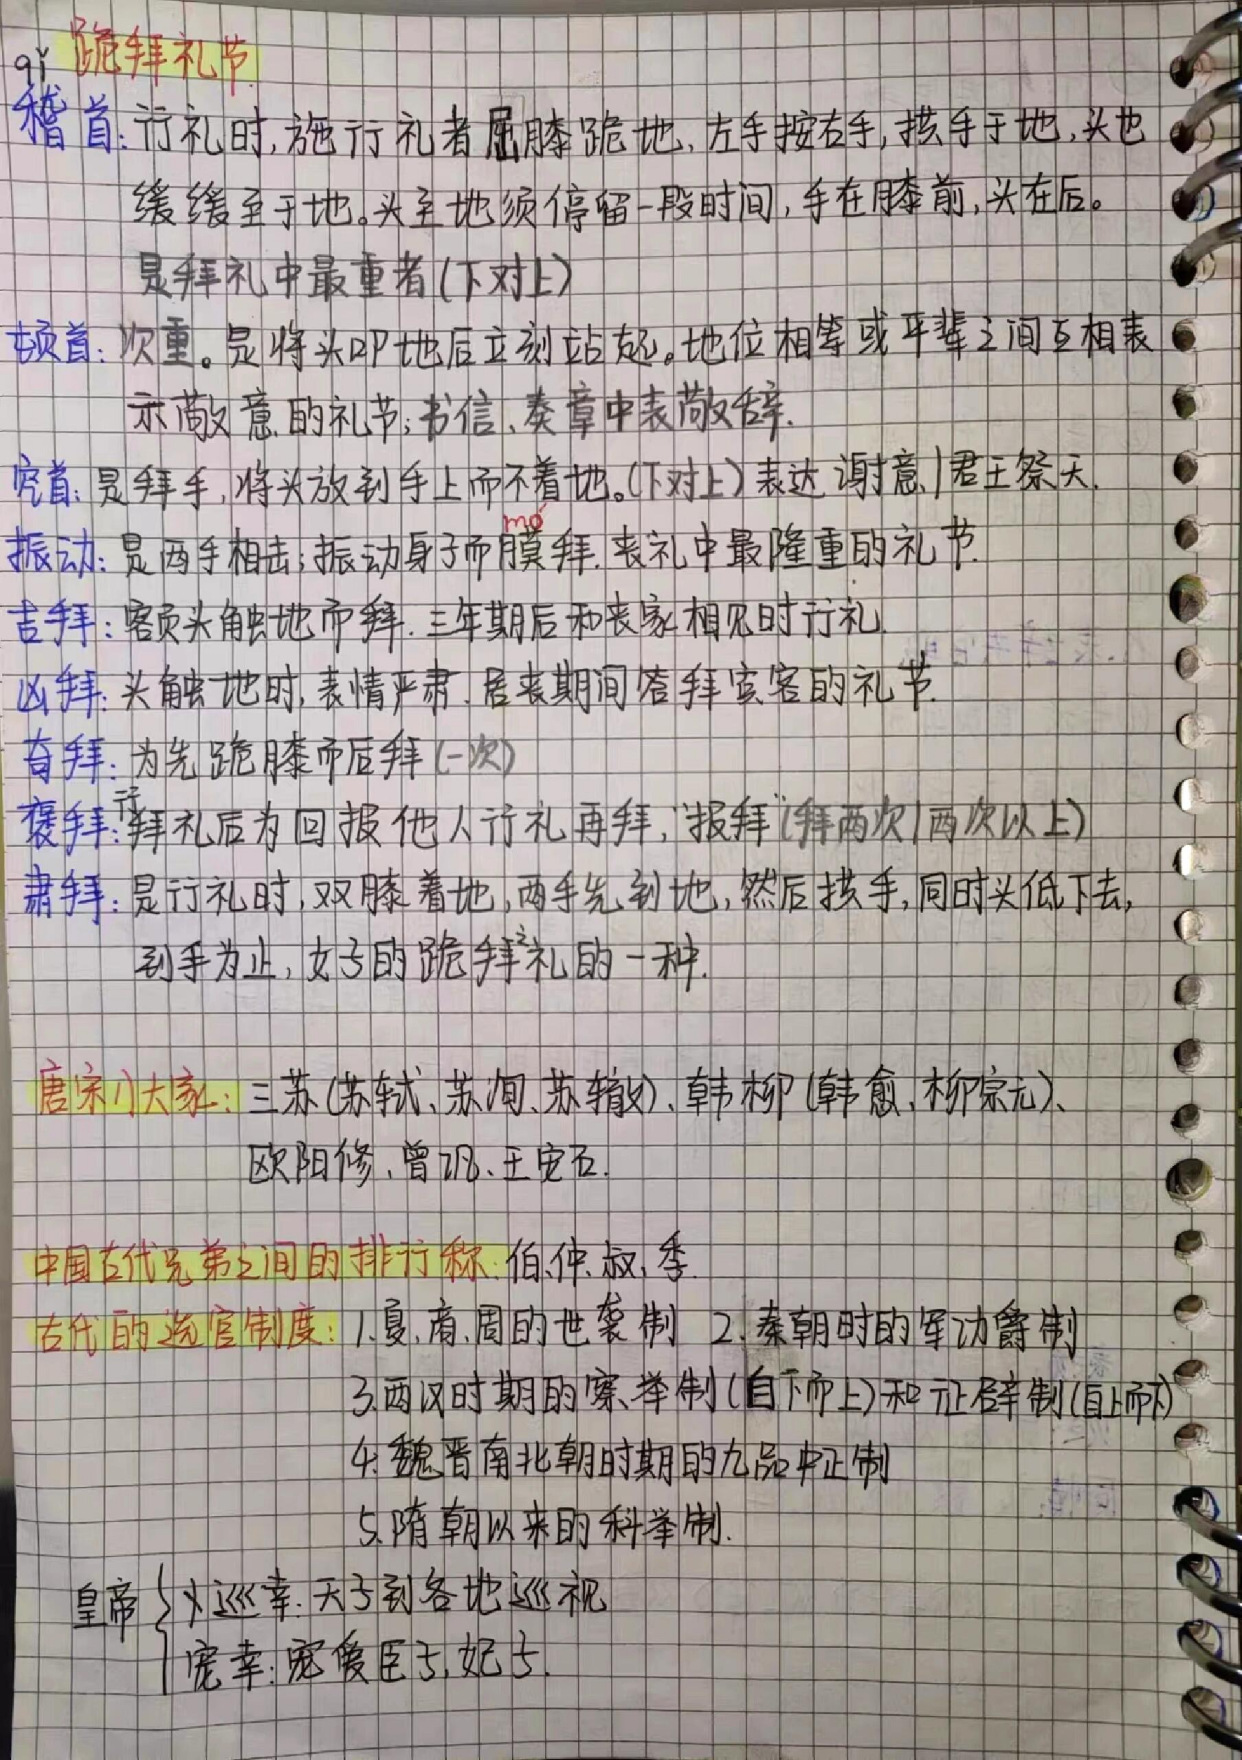 跪拜礼节
qǐ
稽首：行礼时，施行礼者屈膝跪地，左手按右手，拱手于地，头也
缓缓至于地。头至地须停留一段时间，手在膝前，头在后。
是拜礼中最重者（下对上）
顿首：次重。是将头叩地后立刻站起。地位相等或平辈之间互相表
示敬意的礼节；书信、奏章中表敬辞.
空首：是拜手，将头放到手上而不着地。（下对上）表达谢意/君王祭天.
mó
振动：是两手相击；振动身子而膜拜.丧礼中最隆重的礼节.
吉拜：客员头触地而拜.三年期后和丧家相见时行礼.
凶拜：头触地时，表情严肃.居丧期间答拜宾客的礼节.
奇拜：为先跪膝而后拜（一次）
褒拜：行拜礼后为回报他人行礼再拜，“报拜”（拜两次/两次以上）
肃拜：是行礼时，双膝着地，两手先到地，然后拱手，同时头低下去，
到手为止，女子的跪拜之礼的一种.
唐宋八大家：三苏（苏轼、苏洵、苏辙）、韩柳（韩愈、柳宗元）、
欧阳修、曾巩、王安石.
中国古代兄弟之间的排行称：伯、仲、叔、季.
古代的选官制度：1.夏、商、周的世袭制 2.秦朝时的军功爵制
3.两汉时期的察举制（自下而上）和征辟制（自上而下）
4.魏晋南北朝时期的九品中正制
5.隋朝以来的科举制.
皇帝 巡幸：天子到各地巡视
宠幸：宠爱臣子，妃子.